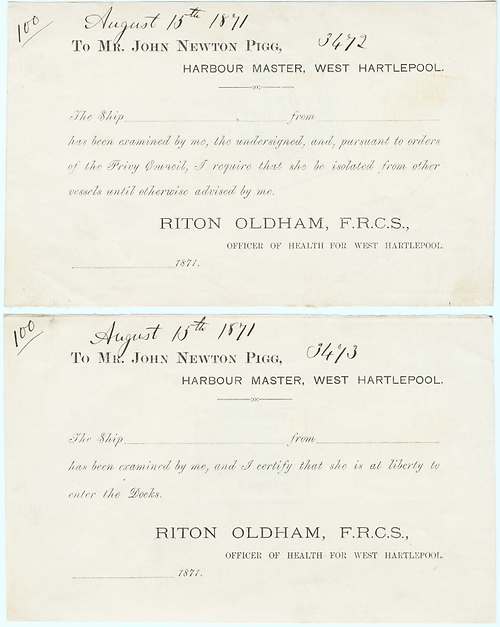 100
August 15th 1871
To Mr. John Newton Pigg,
3472
HARBOUR MASTER, WEST HARTLEPOOL.
The Ship from
has been examined by me, the undersigned, and, pursuant to orders
of the Privy Council, I require that she be isolated from other
vessels until otherwise advised by me.
RITON OLDHAM, F.R.C.S.,
OFFICER OF HEALTH FOR WEST HARTLEPOOL.
1871.
100
August 15th 1871
To Mr. John Newton Pigg,
3473
HARBOUR MASTER, WEST HARTLEPOOL.
The Ship from
has been examined by me, and I certify that she is at liberty to
enter the Docks.
RITON OLDHAM, F.R.C.S.,
OFFICER OF HEALTH FOR WEST HARTLEPOOL.
1871.